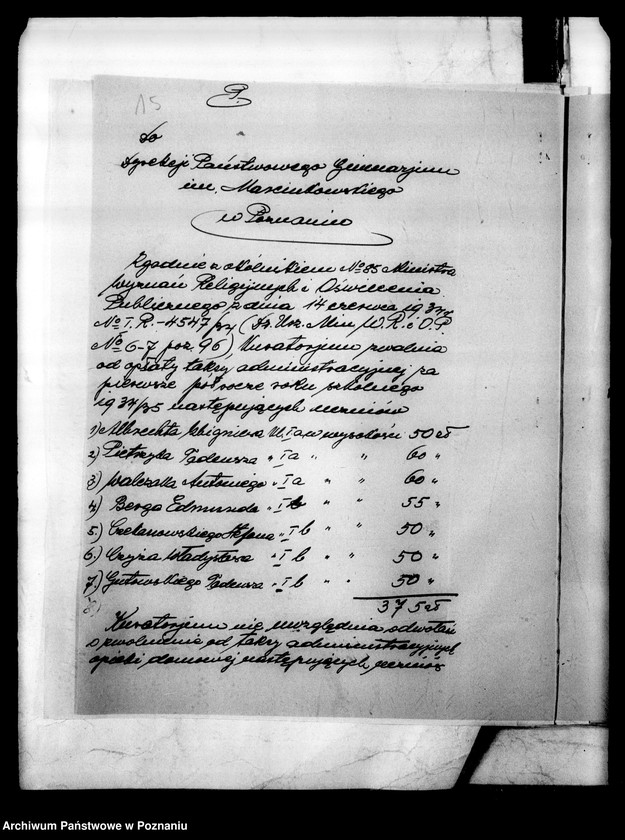 15
P.
Do
Dyrekcji Państwowego Gimnazjum
im. Marcinkowskiego
w Poznaniu
Zgodnie z okólnikiem No 85 Ministra
Wyznań Religijnych i Oświecenia
Publicznego z dnia 14 czerwca 1934
No I. R.-4547/34 (Dz. Urz. Min. W. R. i O. P.
No 6-7 poz. 96), Kuratorjum zwalnia
od opłaty taksy administracyjnej za
pierwsze półrocze roku szkolnego
1934/35 następujących uczniów
1) Albrechta Zbigniewa Ia w wysokości 50 zł
2) Pietrzyka Tadeusza " Ia " " 60 "
3) Walczaka Antoniego " Ia " " 60 "
4) Bergo Edmunda " Ib " " 55 "
5.) Czekanowskiego Stefana " Ib " 50 "
6.) Czyża Władysława " Ib " " 50 "
7.) Gutowskiego Tadeusza " Ib " " 50 "
375 zł
Kuratorjum nie uwzględnia odwołań
o zwolnienie od taksy administracyjnej
opieki domowej następujących uczniów
Archiwum Państwowe w Poznaniu